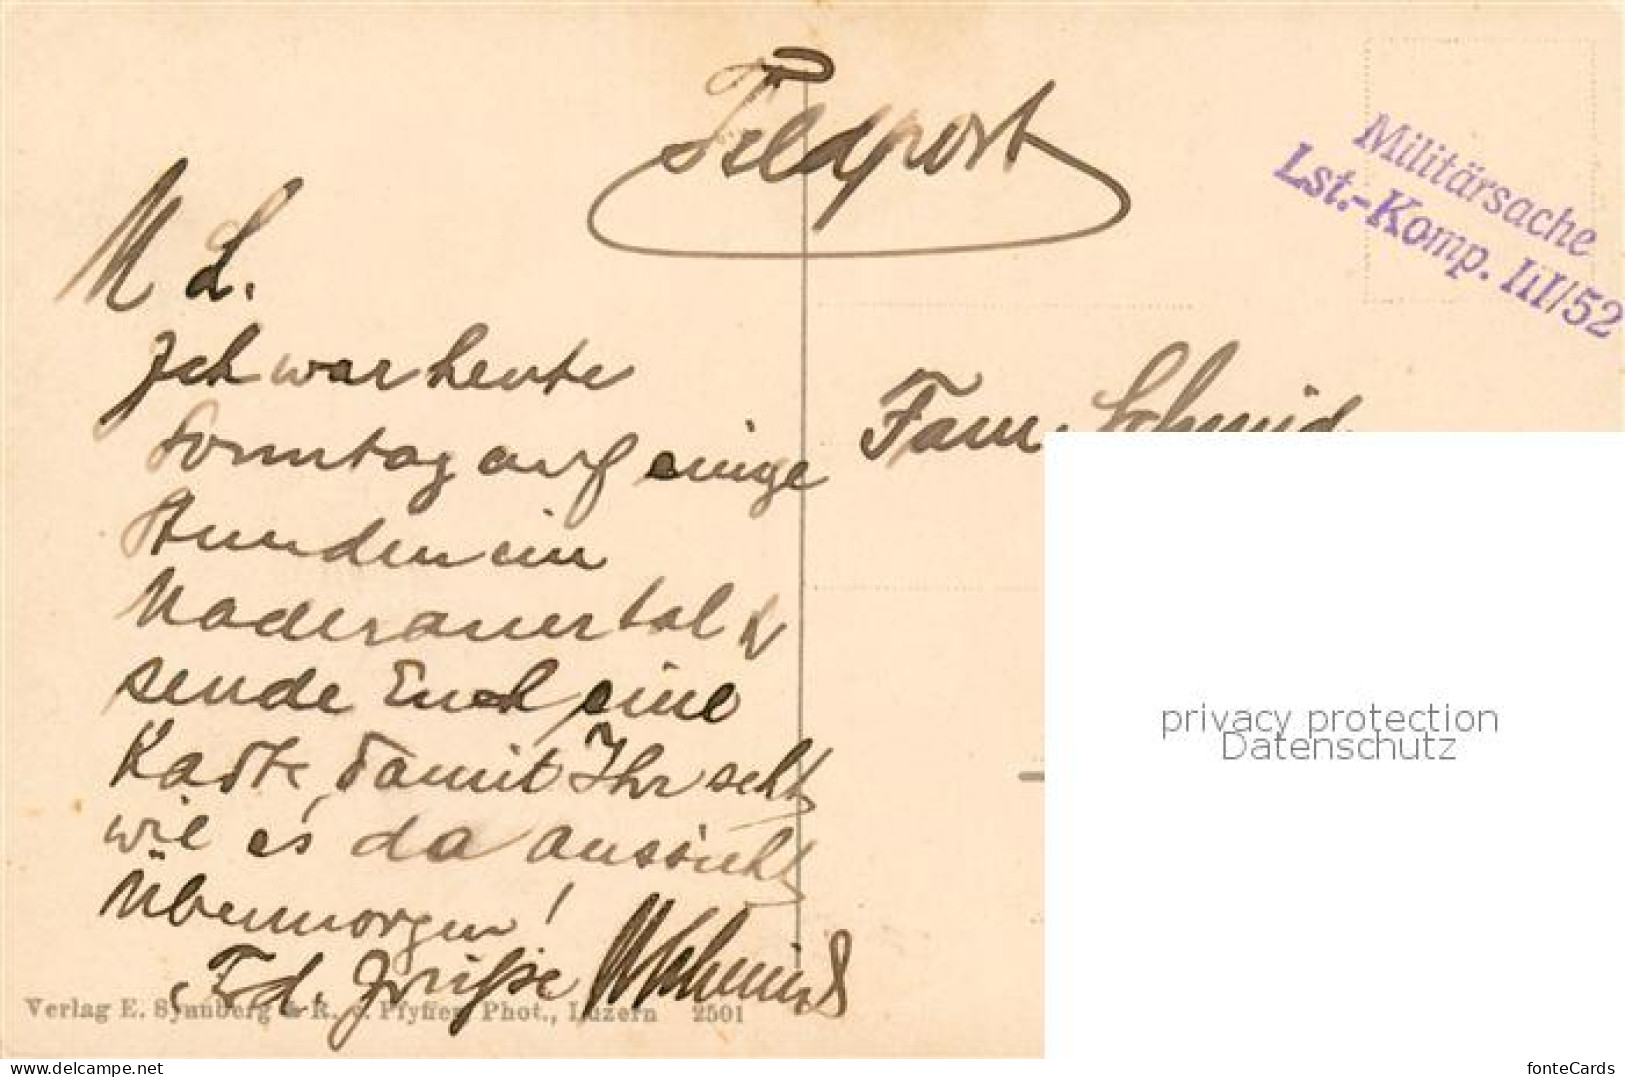 Feldpost
Militärsache
Lst.-Komp. III/52
M L.
Ich war heute
Sonntag auf einige
Stunden im
Maderanertal &
sende Euch eine
Karte, damit Ihr seht
wie es da aussieht
Übermorgen!
Fd. Grüsse MSchmid
Fam. Schmid
privacy protection
Datenschutz
Verlag E. Synnberg & R. v. Pfyffer, Phot., Luzern 2501
www.delcampe.net
fonteCards